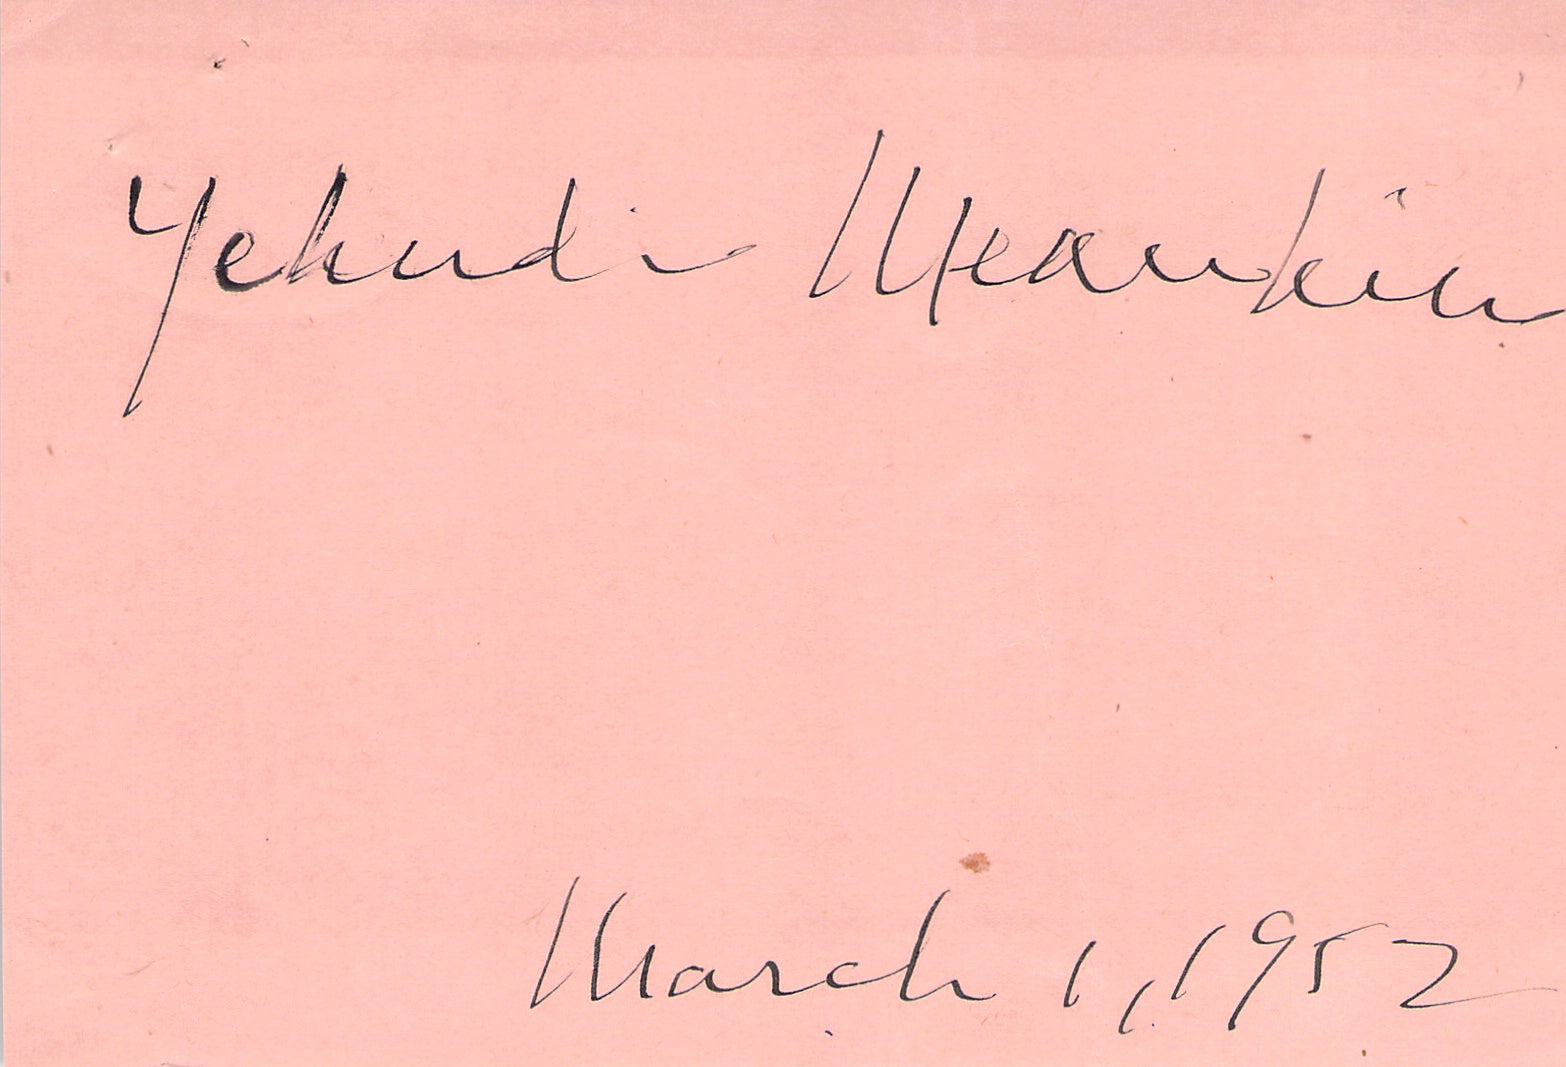 Yehudi Menuhin
March 1, 1952